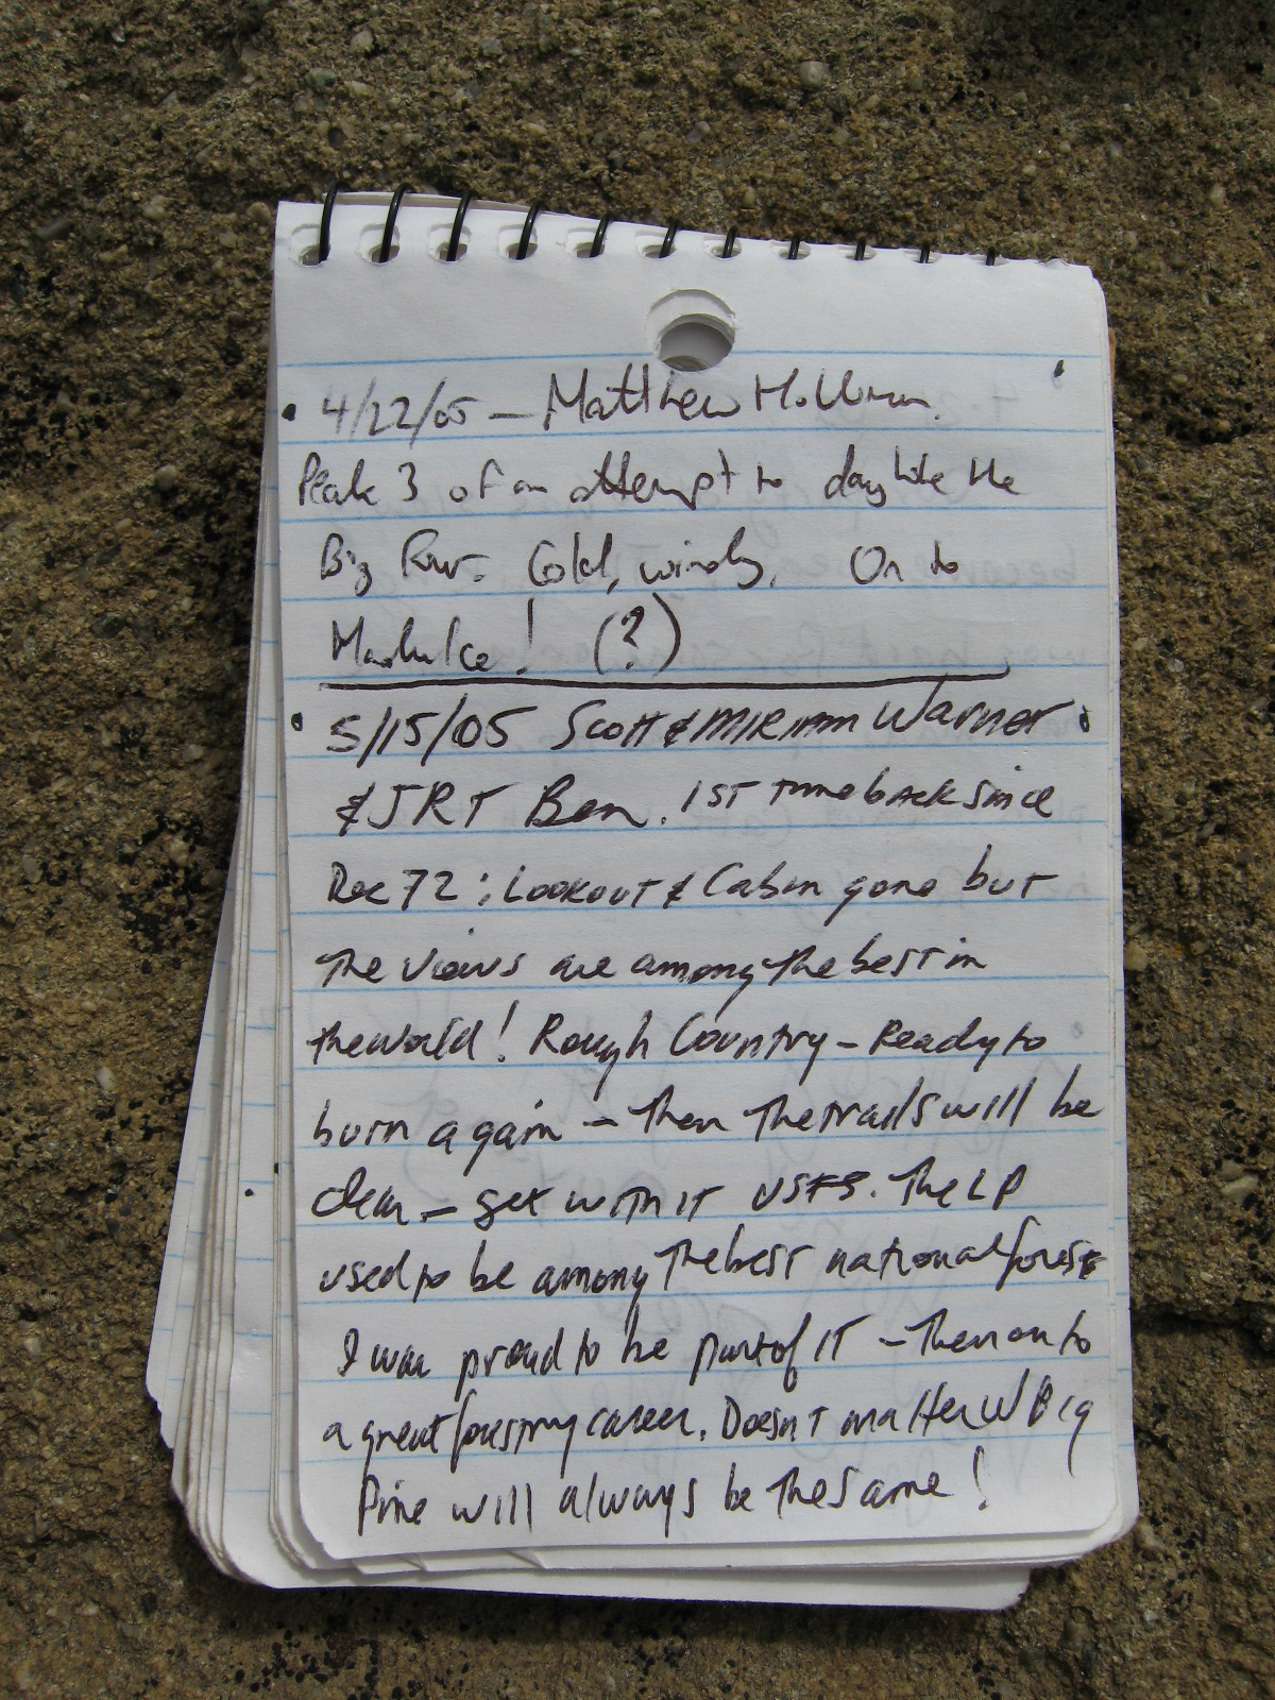 4/22/05 – Matthew Hollman.
Peak 3 of an attempt to dayhike the
Big Four. Cold, windy. On to
! (?)
5/15/05 Scott & MIRIAM Warner
& JRT Ben. 1ST time back since
Dec 72: Lookout & Cabin gone but
The views are among the best in
the world! Rough Country – Ready to
burn again – Then The trails will be
clear – get with it USFS. The LP
used to be among The best national forest
I was proud to be part of IT – Then on to
a great forestry career. Doesn't matter W Big
Pine will always be The same!